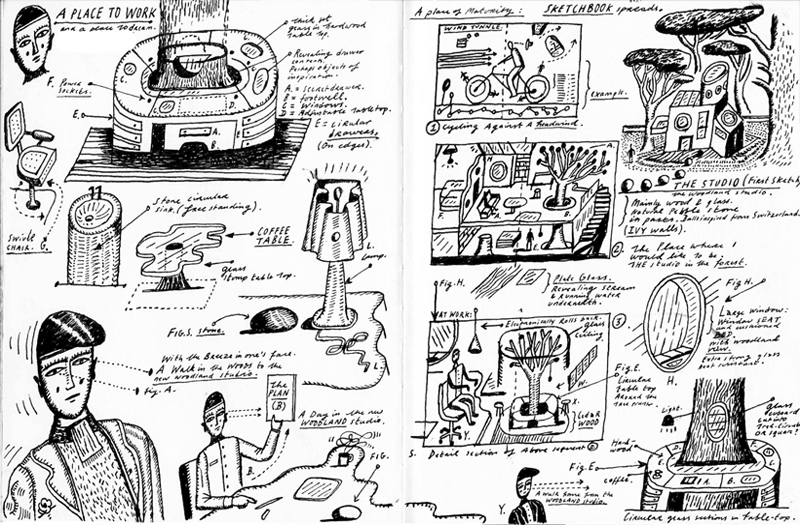 A PLACE TO WORK
and a place to dream.
Thick set
glass in hardwood
table top.
Revealing drawer
contents.
Perhaps objects of
inspiration.
F. Power
sockets.
A = secret drawer.
B = footwells.
C = windows.
D = Adjustable tabletop.
E = circular
drawers,
(on edges).
E.
A.
B.
C.
D.
Swivle
CHAIR. G.
Stone circular
sink. (free standing).
COFFEE
TABLE.
glass
Stump table top.
L.
Lamp.
FIG.S. stone.
With the Breeze in one's face.
A Walk in the woods to the
new woodland studio.
fig. A.
THE
PLAN
(B)
A Day in the new
WOODLAND studio.
B.
FIG.
A place of Maturity: SKETCHBOOK spreads.
WIND TUNNEL.
Example.
1 Cycling Against A Headwind.
THE STUDIO (First Sketch)
the woodland studio.
Mainly wood & glass.
Natural Pebble stone
in passers.
inspired from Switzerland.
(IVY walls).
2. The Place where I
would like to be.
THE studio in the forest.
Fig.H.
Plate Glass.
Revealing stream
& Running water
underneath.
Fig H.
Large window:
Window SEAT
and cushioned
BED
with woodland
view.
Extra strong glass
H.
AT WORK:
Electronically Rolls back
glass
ceiling
3
Fig.E.
Circular
Table top
Around the
tree
W.
X.
Y.
CEDAR
WOOD
S. Detail section of Above
Light.
glass
Hard-
wood
Fig.E
coffee.
A Walk home from the
WOODLAND studio.
Y.
Circular glass sections in table-top.